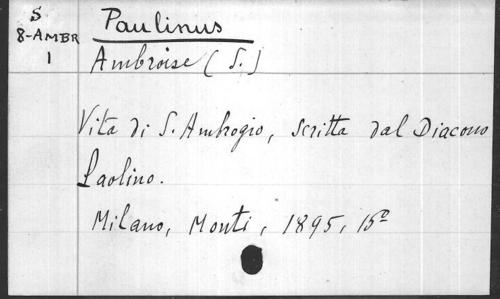 S
8-AMBR
1
Paulinus
Ambroise (S.)
Vita di S. Ambrogio, scritta dal Diacono
Paolino.
Milano, Monti, 1895, 15º